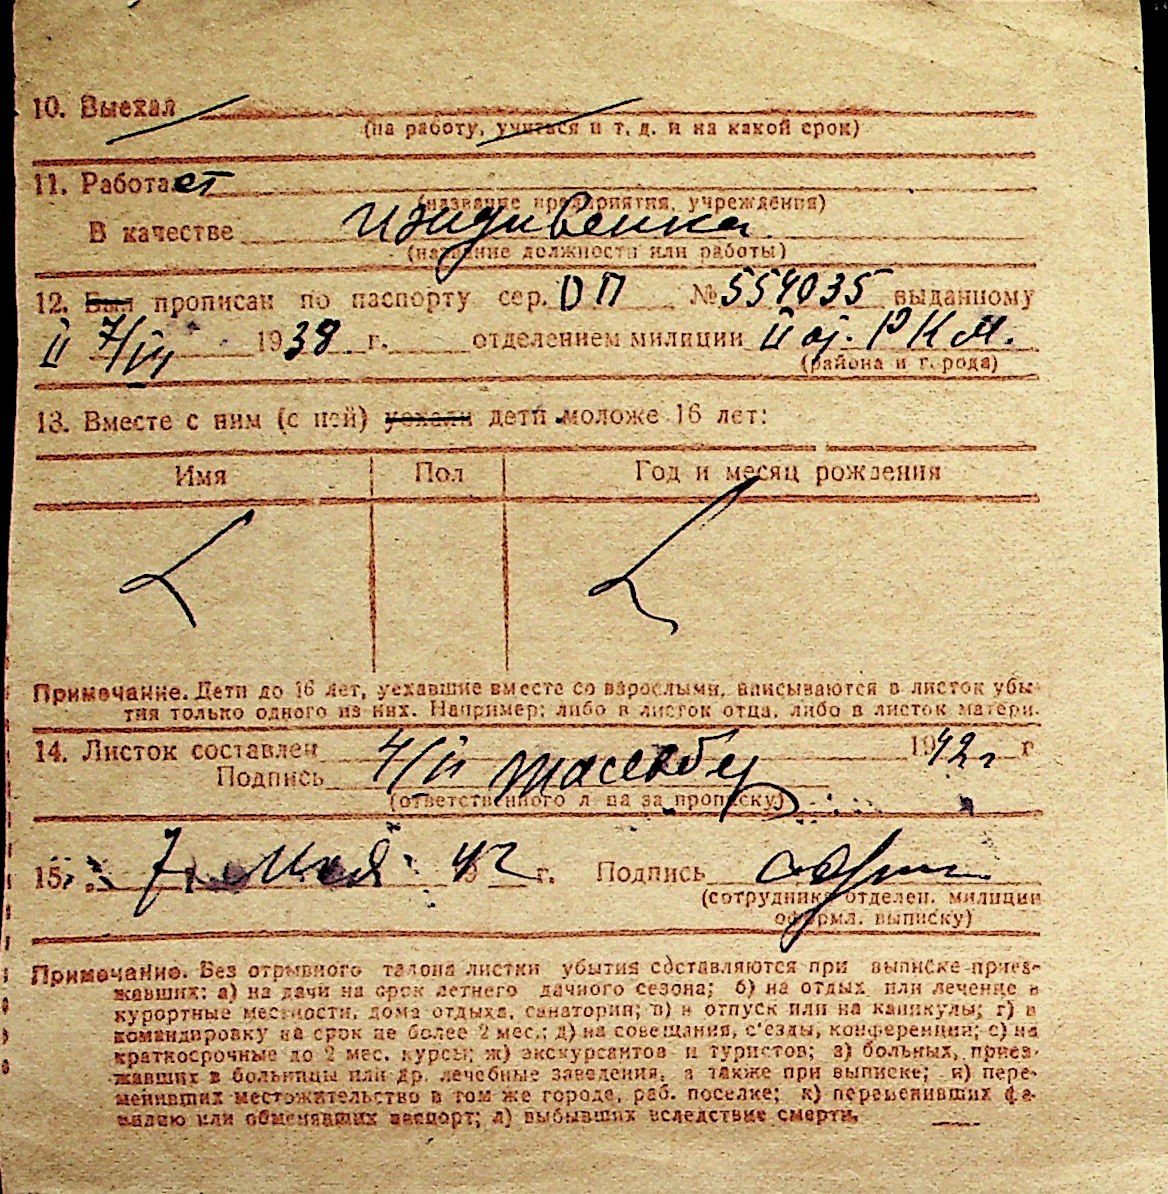 10. Выехал
(на работу, учиться и т. д. и на какой срок)
11. Работает
(название предприятия, учреждения)
В качестве иждивенка.
(название должности или работы)
12. Был прописан по паспорту сер. DП № 554035 выданному
7/III 1938 г. отделением милиции II от. РКМ.
(района и города)
13. Вместе с ним (с ней) уехали дети моложе 16 лет:
Имя Пол Год и месяц рождения
Примечание. Дети до 16 лет, уехавшие вместе со взрослыми, вписываются в листок убы-
тия только одного из них. Например: либо в листок отца, либо в листок матери.
14. Листок составлен 1942 г
Подпись
(ответственного лица за прописку)
15. 7 мая 42 г. Подпись
(сотрудника отделен. милиции
оформл. выписку)
Примечание. Без отрывного талона листки убытия составляются при выписке приез-
жавших: а) на дачи на срок летнего дачного сезона; б) на отдых или лечение в
курортные местности, дома отдыха, санатории; в) в отпуск или на каникулы; г) в
командировку на срок не более 2 мес.; д) на совещания, с'езды, конференции; е) на
краткосрочные до 2 мес. курсы; ж) экскурсантов и туристов; з) больных, приез-
жавших в больницы или др. лечебные заведения, а также при выписке; и) пере-
менивших местожительство в том же городе, раб. поселке; к) переменивших фа-
милию или обменявших паспорт; л) выбывших вследствие смерти.